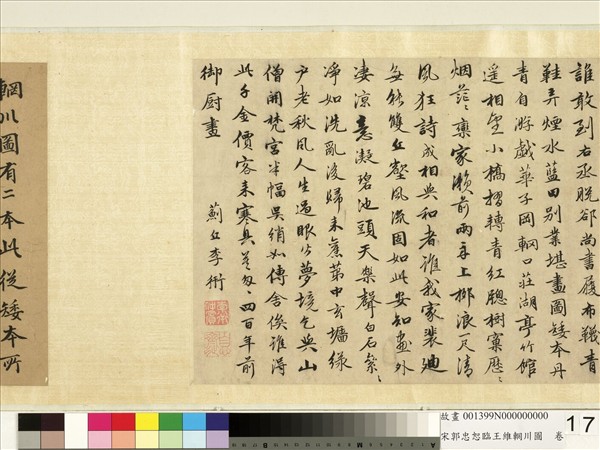 誰敢到右丞脫却尚書履布韈青
鞋弄煙水藍田別業堪畫圖矮本丹
青自游戲華子岡輞口莊湖亭竹館
遥相望小橋摺轉青紅聰樹窠歷、
烟茫、欒家瀨前兩手上柳浪一尺清
風狂詩成相與和者誰我家裴迪
每能雙丘壑風流固如此安知畫外
凄涼意凝碧池頭天樂聲白石粼、
淨如洗亂後歸來蕉葉中玄壚緑
户老秋風人生過眼皆夢境乞與山
僧開梵宮半幅吳綃如傳舍俟誰得
此千金價客来寒具莫匆、四百年前
御厨畫
薊丘李衎
輞川圖有二本此従矮本所
故畫 001399N000000000
宋郭忠恕臨王維輞川圖 卷
17